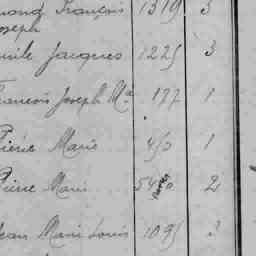 François 1319 3
Joseph
Jacques 1225 3
François Joseph Ma 177 1
Pierre Marie 450 1
Pierre Marie 2
Jean Marie Louis 1095